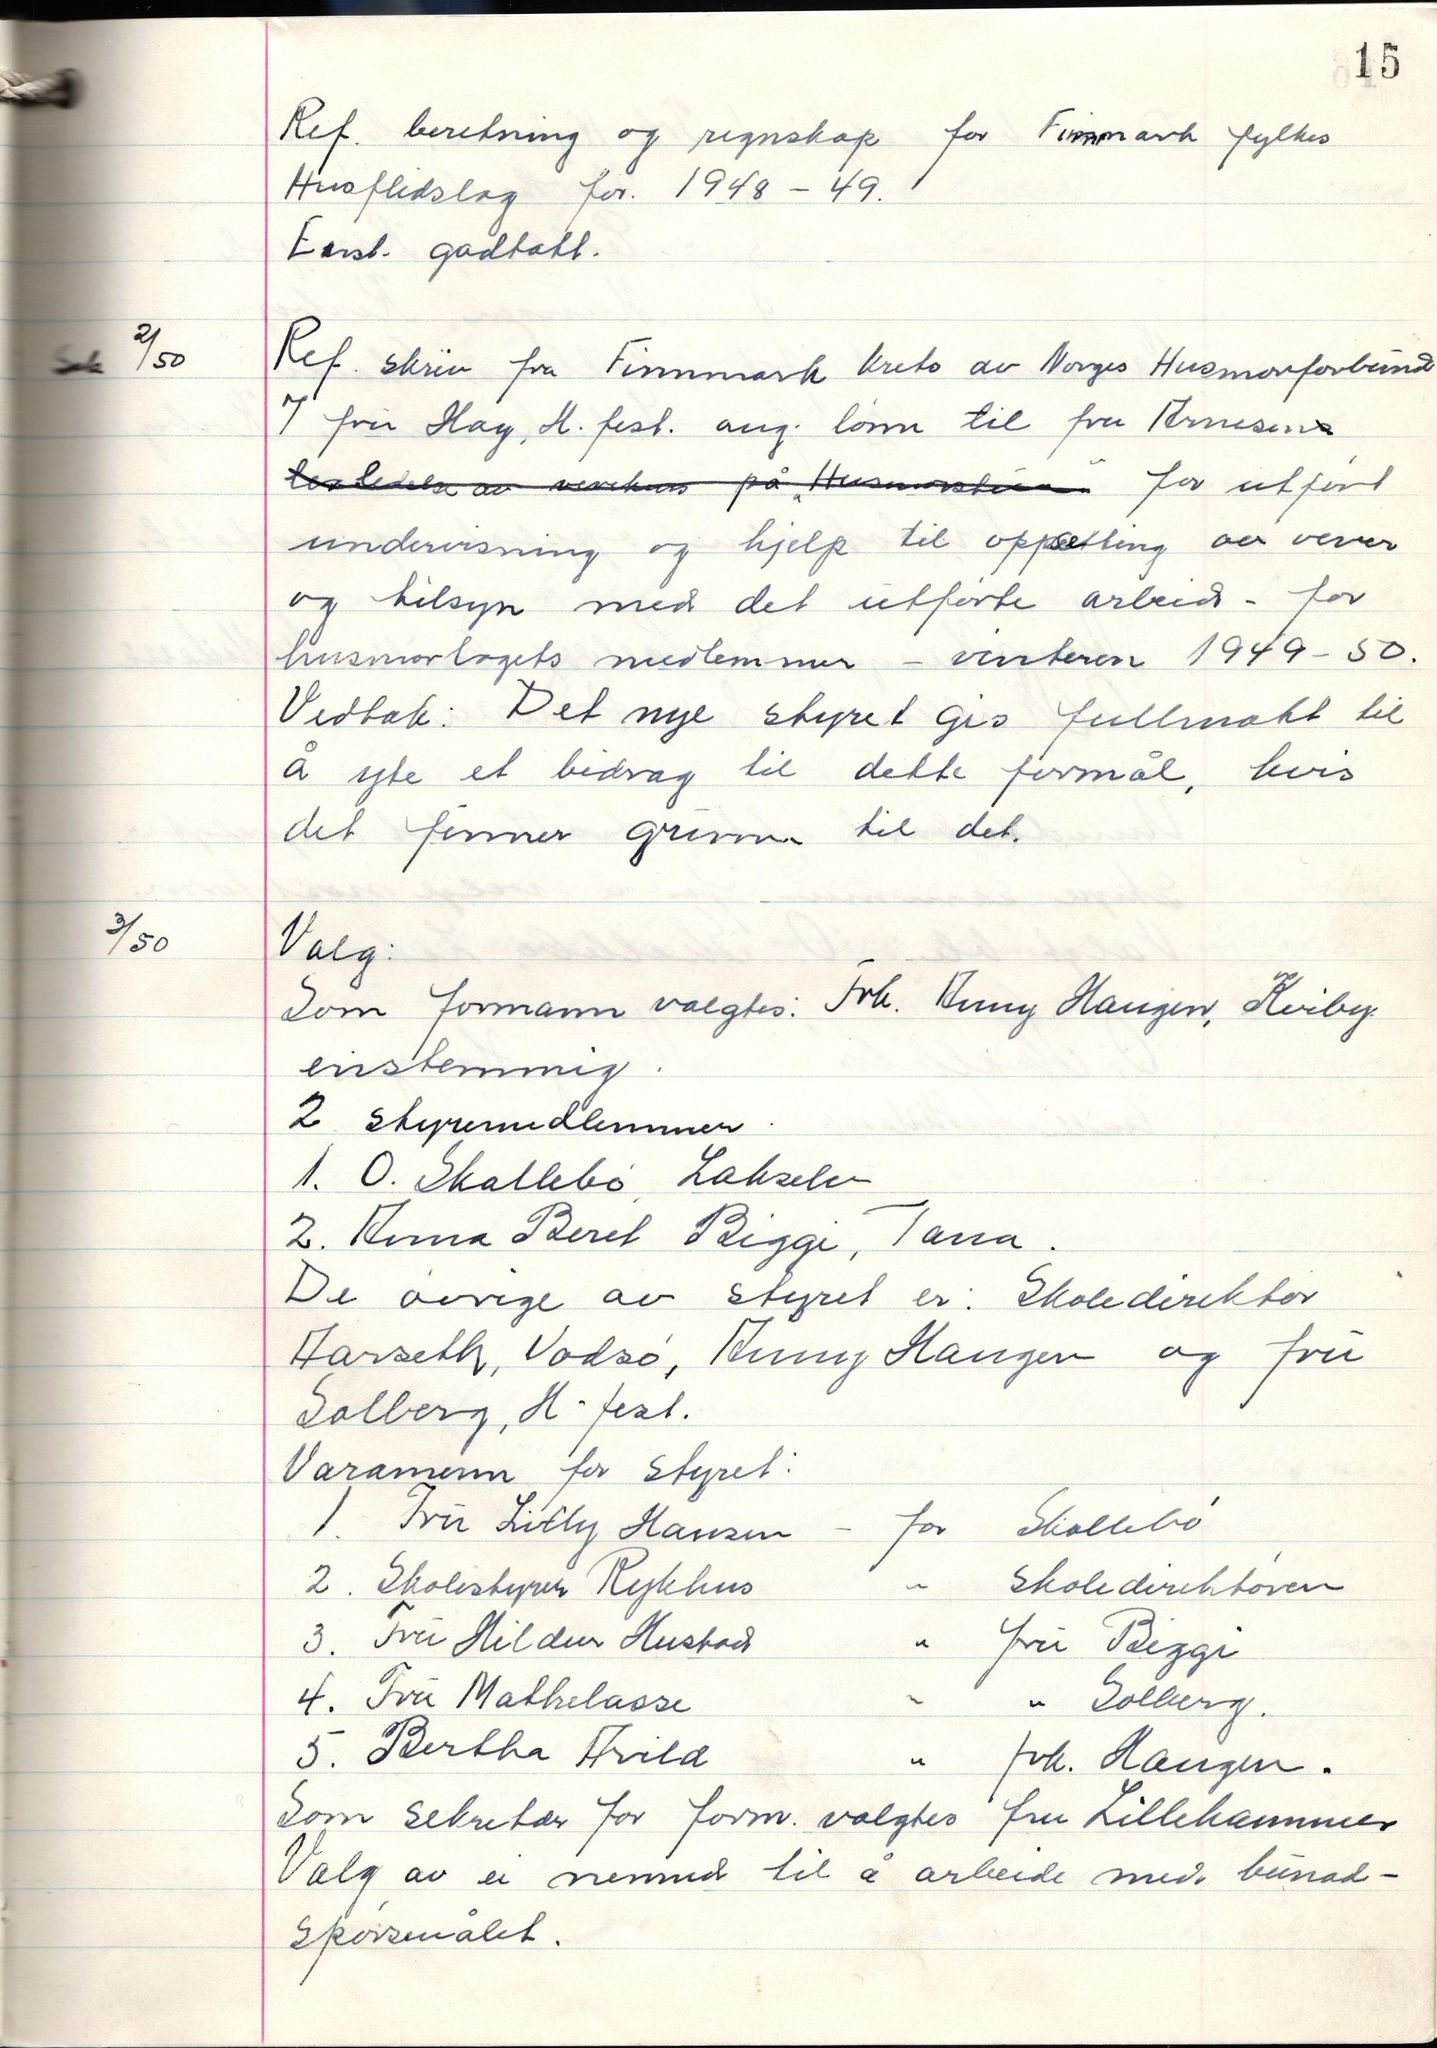 15
Ref. beretning og regnskap for Finnmark fylkes
Husflidslag for 1948 - 49.
Enst. godtatt.
Sak 2/50 Ref. skriv fra Finnmark krets av Norges Husmorforbund
v/ fru Hay, H. fest. ang. lønn til fru Arnesen
for ledelse av vevekurs på "Husmorstua" for utført
undervisning og hjelp til oppsetting av vever
og tilsyn med det utførte arbeid - for
husmorlagets medlemmer - vinteren 1949 - 50.
Vedtak: Det nye styret gis fullmakt til
å yte et bidrag til dette formål, hvis
det finner grunn til det.
3/50 Valg:
Som formann valgtes: Frk. Anny Haugen, Kviby.
enstemmig.
2 styremedlemmer.
1. O. Skallebø, Lakselv
2. Anna Beret Biggi, Tana.
De øvrige av styret er: Skoledirektør
Aarseth, Vadsø, Anny Haugen og fru
Solberg, H. fest.
Varamenn for styret:
1. Fru Lilly Hansen - for Skallebø
2. Skolestyrer Rykhus " skoledirektøren
3. Fru Hildur Hustad " fru Biggi
4. Fru Mathelasse " " Solberg.
5. Bertha Arild " frk. Haugen.
Som sekretær for form. valgtes fru Lillehammer
Valg av ei nemnd til å arbeide med bunad-
spørsmålet.